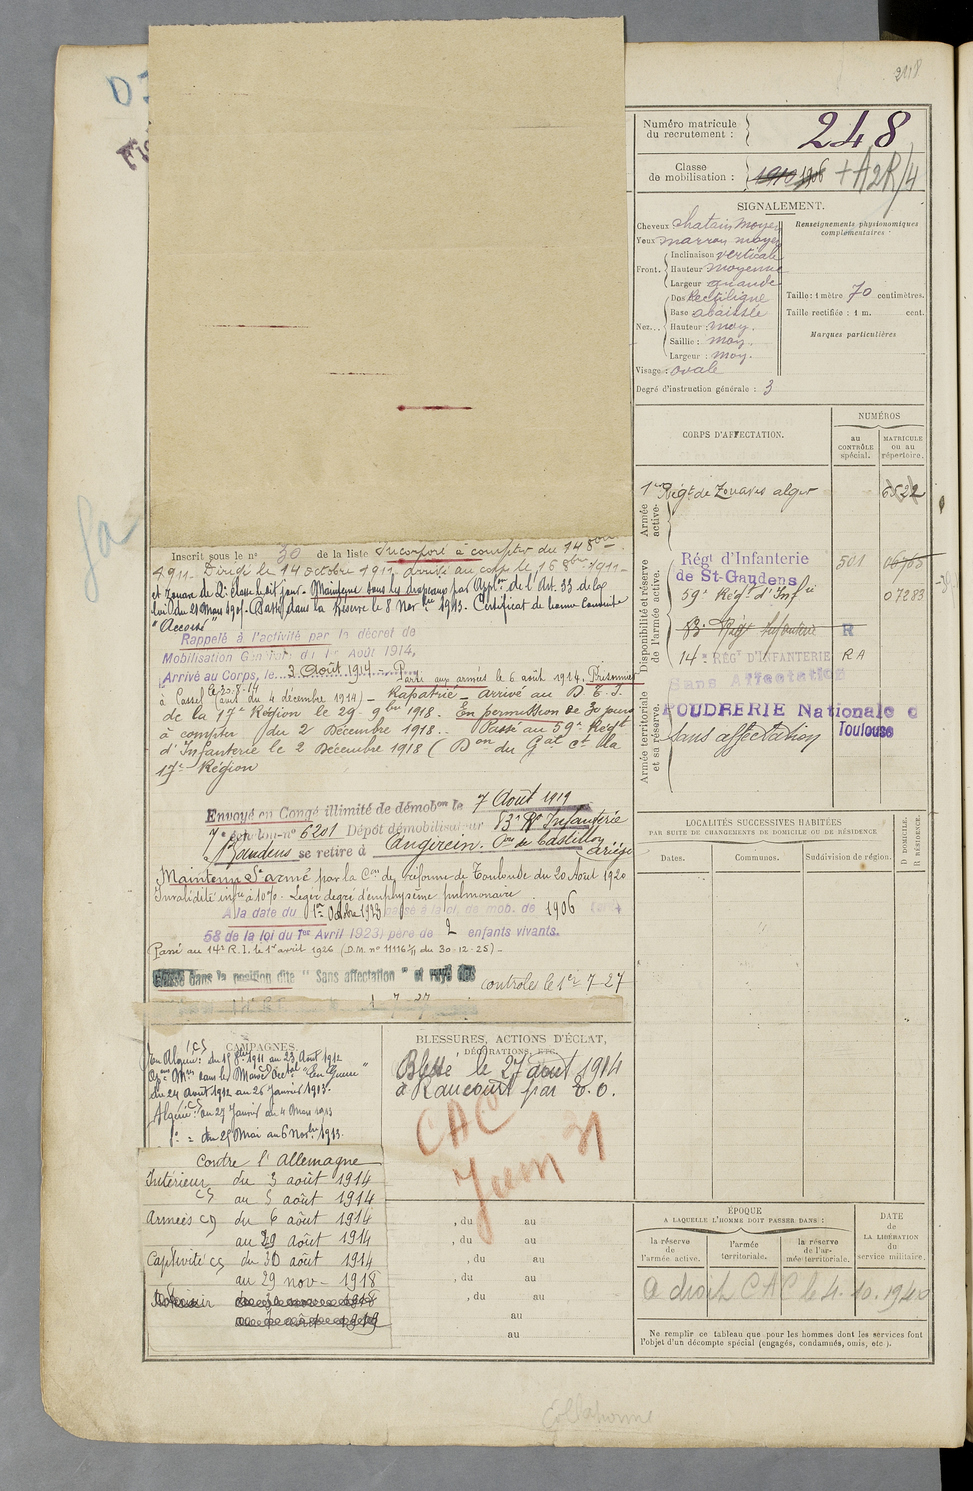 248
Numéro matricule
du recrutement :
248
Classe
de mobilisation :
1910 1906 + A2R/4
SIGNALEMENT.
Cheveux chatain moyen
Yeux marron moyen
Front.
Inclinaison verticale
Hauteur moyenne
Largeur grande
Nez...
Dos Rectiligne
Base abaissée
Hauteur : moy.
Saillie : moy.
Largeur : moy.
Visage : ovale
Degré d'instruction générale : 3
Renseignements physionomiques
complémentaires :
Taille : 1 mètre 70 centimètres.
Taille rectifiée : 1 m. cent.
Marques particulières
CORPS D'AFFECTATION.
NUMÉROS
au
CONTRÔLE
spécial.
MATRICULE
ou au
répertoire.
Armée
active.
1er Régt de Zouaves alger 6522
Disponibilité et réserve
de l'armée active.
Régt d'Infanterie 501
de St-Gaudens
59e Régt d'Infie 07283
83e Regt Infanterie R
14e RÉGt D'INFANTERIE RA
Armée territoriale
et sa réserve.
Sans Affectation
POUDRERIE Nationale
Toulouse
sans affectation
Inscrit sous le no 30 de la liste Incorporé à compter du 14 8bre
1911. Dirigé le 14 octobre 1911, arrivé au corps le 16 8bre 1911
et Zouave de 2e classe ledit jour. Maintenu sous les drapeaux par Applon de l'Art. 33 de la
loi du 21 Mars 1905. Passé dans la Réserve le 8 Novbre 1913. Certificat de bonne Conduite
"Accordé"
Rappelé à l'activité par le décret de
Mobilisation Générale du 1er Août 1914,
Arrivé au Corps, le... 3 Août 1914 Parti aux armées le 6 août 1914. Prisonnier
à Cassel le 30.8.14 (avis du 4 décembre 1914) _ Rapatrié _ arrivé au D. E. I.
de la 17e Région le 29. 9bre 1918. En permission de 30 jours
à compter du 2 Décembre 1918. Passé au 59e Régt
d'Infanterie le 2 Décembre 1918 (Don du Gal Ct la
17e Région
Envoyé en Congé illimité de démobon le 7 Août 1919
no 6201 Dépôt démobilisateur 83e Rt Infanterie
St Gaudens se retire à Augirein. Con de Castillon
Ariège
Maintenu St armé par la Con de réforme de Toulouse du 20 Août 1920
Invalidité infre à 10%. Léger degré d'emphysème pulmonaire
A la date du 1er Octobre 1933 passé à la cl. de mob. de 1906
58 de la loi du 1er Avril 1923) père de 2 enfants vivants.
Passé au 14e R.I. le 1er avril 1926 (D.M. no 11116 1/11 du 30-12-25)_
Classé dans la position dite "Sans affectation" et rayé des contrôles le 1er-7-27
CAMPAGNES.
En Algérie : du 18bre 1911 au 23 Août 1912
du 24 août 1912 au 26 Janvier 1913.
Algérie : du 27 Janvier au 4 Mars 1913
do = du 25 Mai au 6 Novbre 1913.
Contre l'Allemagne
Intérieur du 3 août 1914
CS au 5 août 1914
Armées CD du 6 août 1914
au 29 août 1914
Captivité CS du 30 août 1914
au 29 nov_ 1918
BLESSURES, ACTIONS D'ÉCLAT,
DÉCORATIONS, ETC.
Blessé le 27 août 1914
à Raucourt par E.O.
CAC
Juin 31
, du au
, du au
, du au
, du au
, du au
au
au
LOCALITÉS SUCCESSIVES HABITÉES
PAR SUITE DE CHANGEMENTS DE DOMICILE OU DE RÉSIDENCE
Dates.
Communes.
Subdivision de région.
D DOMICILE.
R RÉSIDENCE.
ÉPOQUE
A LAQUELLE L'HOMME DOIT PASSER DANS :
la réserve
de
l'armée active.
l'armée
territoriale.
la réserve
de l'ar-
mée territoriale.
DATE
de
LA LIBÉRATION
du
service militaire.
A droit CAC le 4. 10. 1940
Ne remplir ce tableau que pour les hommes dont les services font
l'objet d'un décompte spécial (engagés, condamnés, omis, etc.).